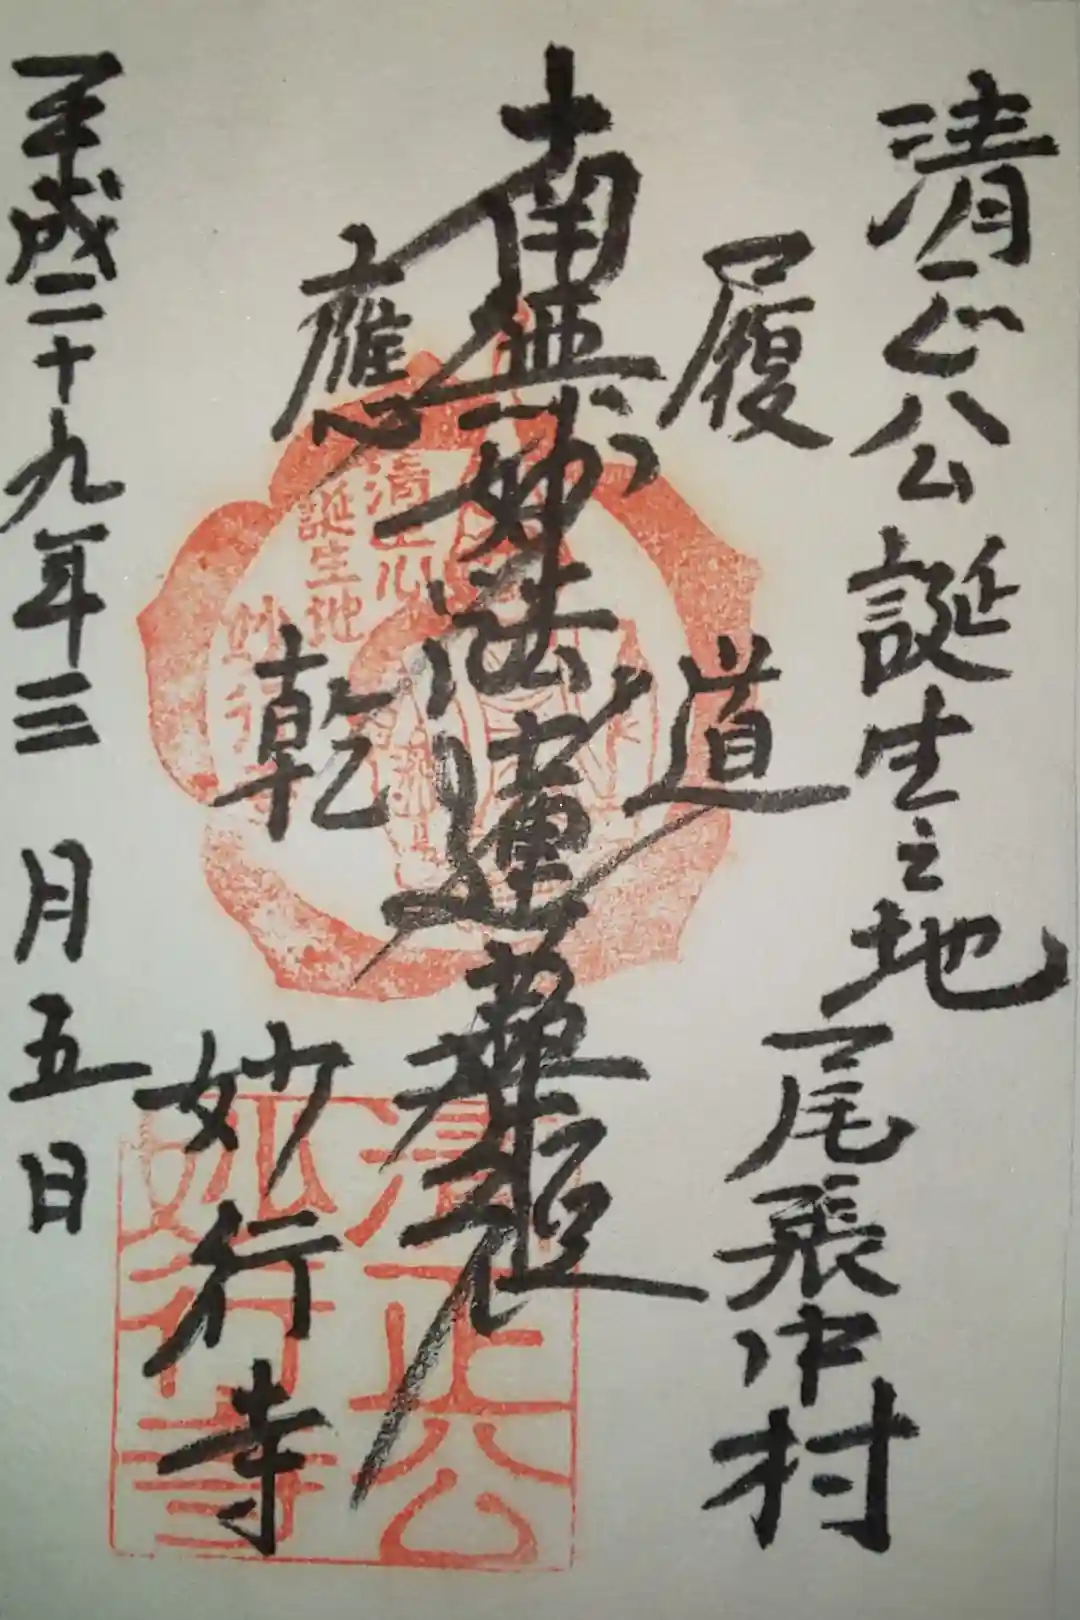 清正公誕生之地
尾張中村
履道
南無妙法蓮華経
應乾
妙行寺
平成二十九年三月五日
清正公
誕生地
妙行寺
清正公
妙行寺